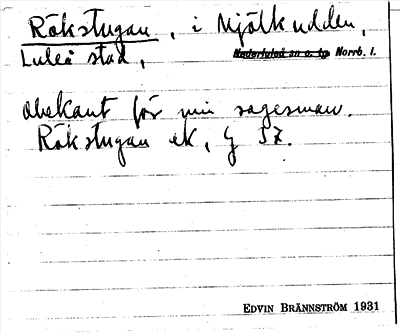 Rökstugan, i Mjölkudden,
Luleå stad, Nederluleå sn o. tg. Norrb. l.
obekant för min sagesman.
Rökstugan ek, g 57.
EDVIN BRÄNNSTRÖM 1931